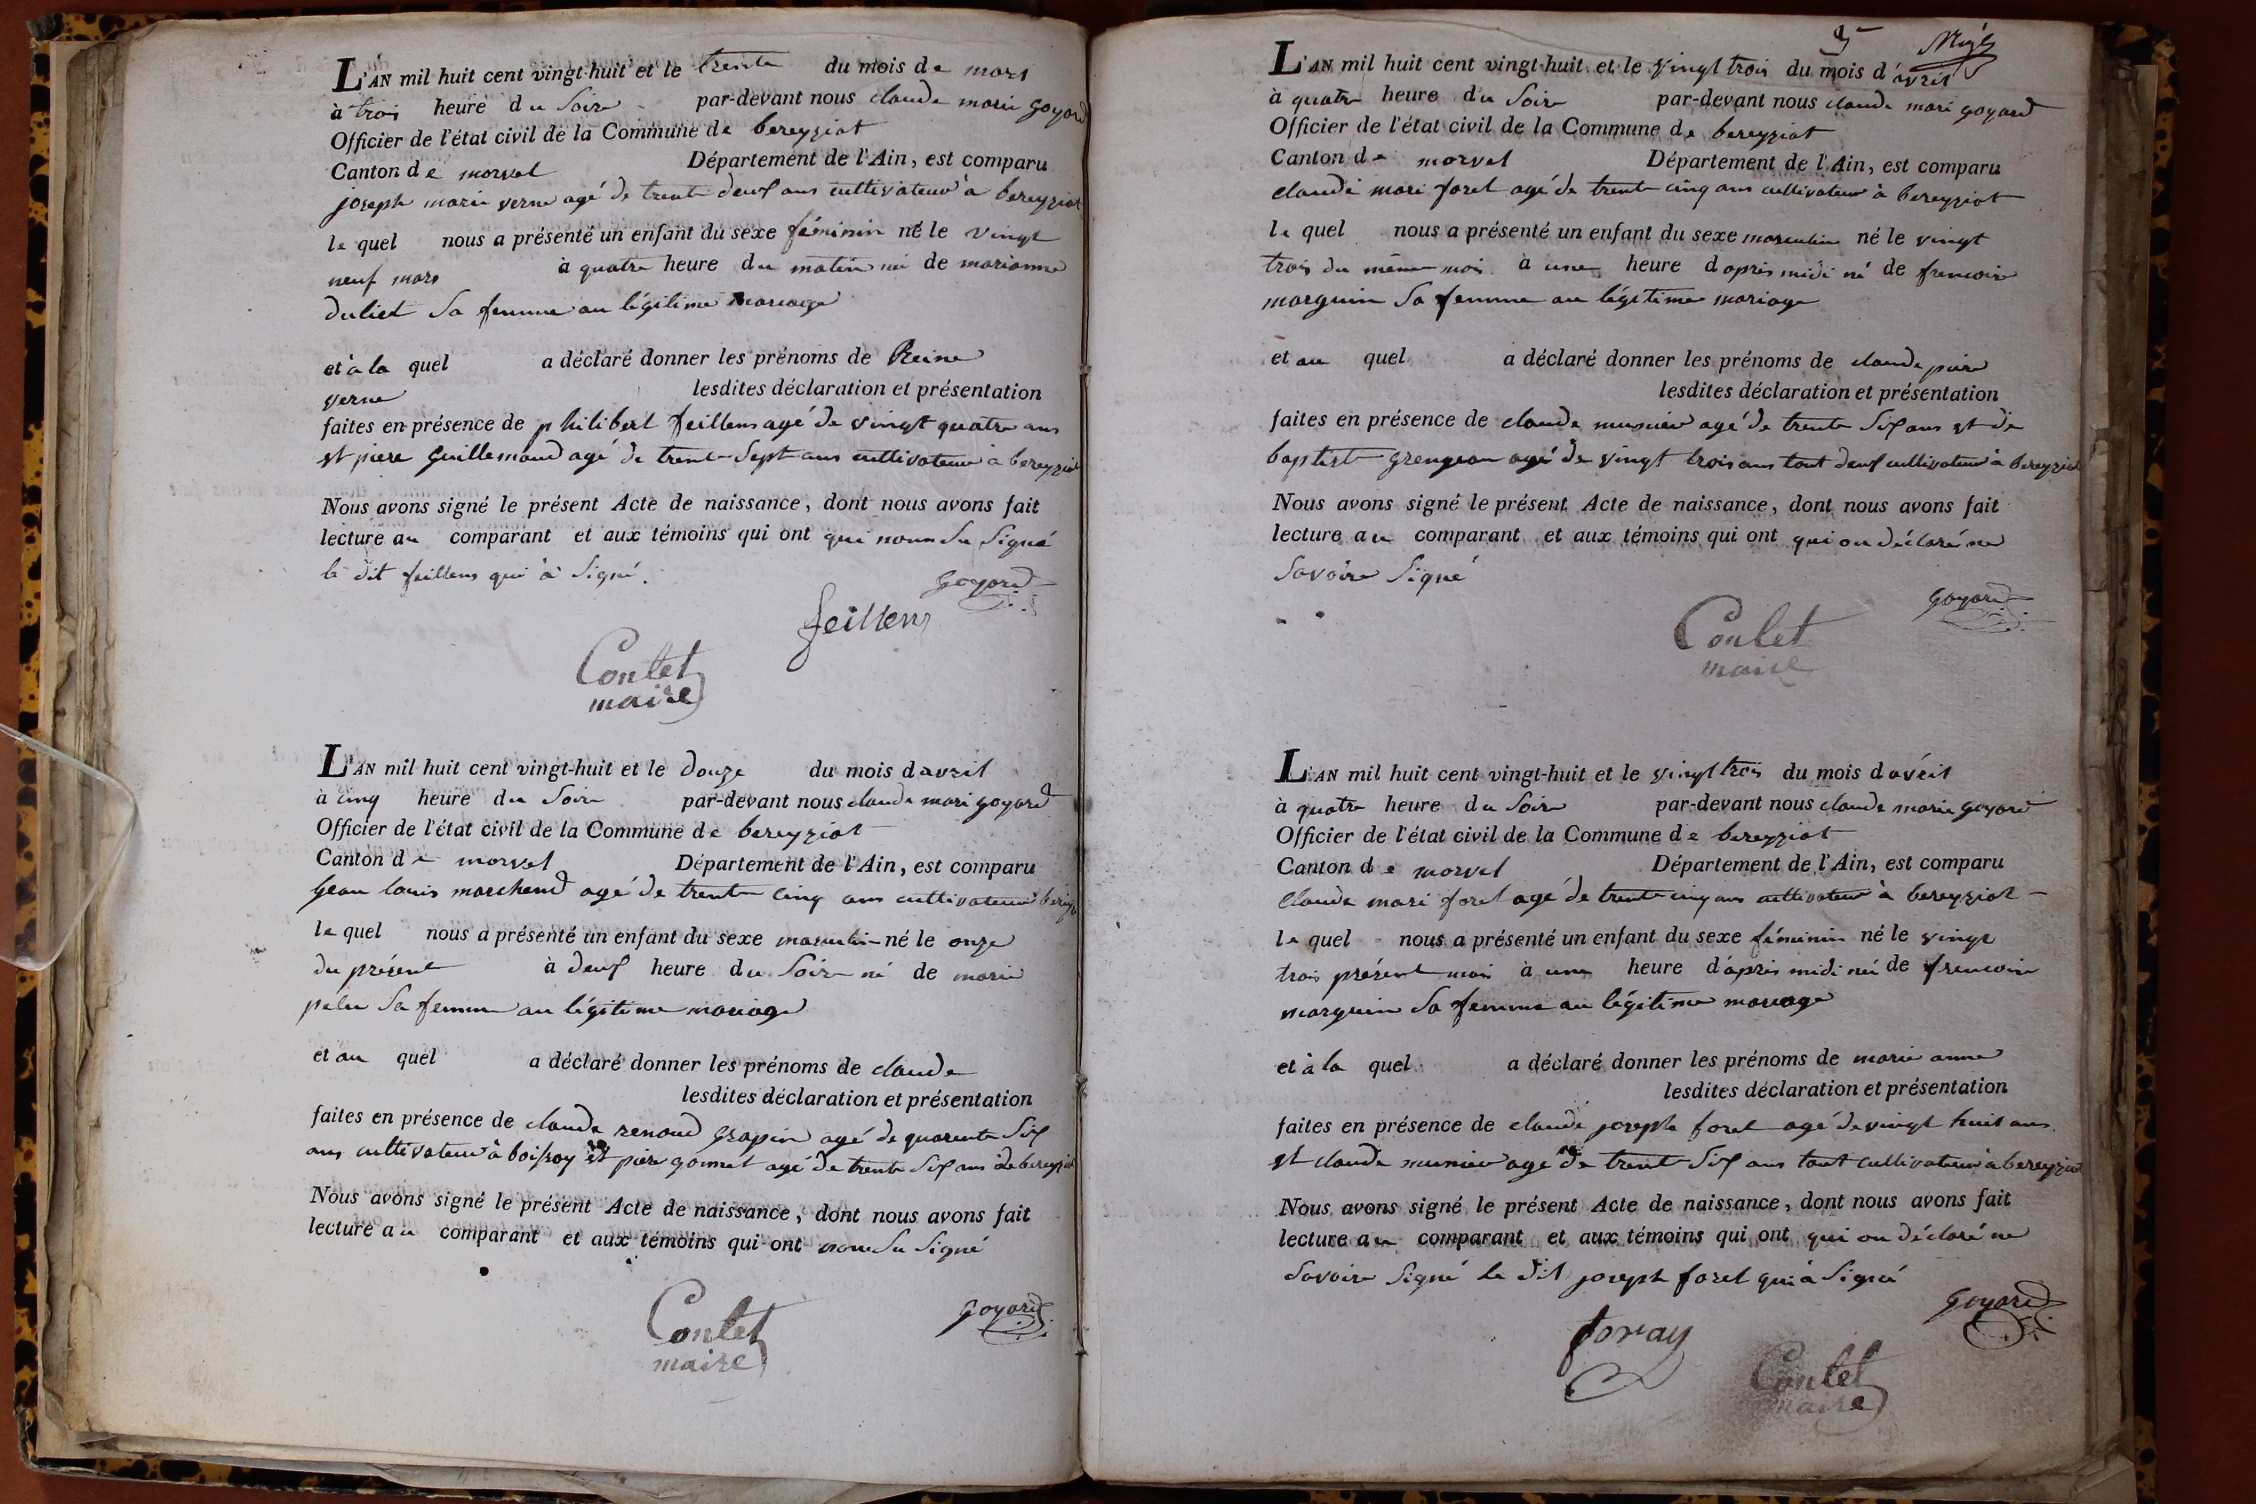 L'AN mil huit cent vingt-huit et le trente du mois de mars
à trois heure du soir par-devant nous claude marie goyard
Officier de l'état civil de la Commune de bereyziat
Canton de morvel Département de l'Ain, est comparu
joseph marie verne agé de trente deux ans cultivateur à bereyziat
le quel nous a présenté un enfant du sexe féminin né le vingt
neuf mars à quatre heure du matin né de marianne
duliet sa femme au légitime mariage
et à la quel a déclaré donner les prénoms de Reine
verne lesdites déclaration et présentation
faites en présence de philibert feillens agé de vingt quatre ans
et piere Guillemaud agé de trente sept ans cultivateur à bereyziat
Nous avons signé le présent Acte de naissance, dont nous avons fait
lecture au comparant et aux témoins qui ont qui nonn su signé
le dit feillens qui à signé.
goyard
feillens
Contet
maire
L'AN mil huit cent vingt-huit et le douze du mois d avril
à cinq heure du soir par-devant nous claude mari goyard
Officier de l'état civil de la Commune de bereyziat
Canton de morvel Département de l'Ain, est comparu
jean louis marchend agé de trente cinq ans cultivateur
le quel nous a présenté un enfant du sexe masculin né le onze
du présent à deux heure du soir né de marie
sa femme au légitime mariage
et au quel a déclaré donner les prénoms de claude
lesdites déclaration et présentation
faites en présence de claude renoud grapin agé de quarente six
ans cultivateur à boissey et piere gonnet agé de trente six ans de bereyziat
Nous avons signé le présent Acte de naissance, dont nous avons fait
lecture au comparant et aux témoins qui ont nonn su signé
goyard
Contet
maire
L'AN mil huit cent vingt-huit et le vingt trois du mois d'avril
à quatre heure du soir par-devant nous claude mari goyard
Officier de l'état civil de la Commune de bereyziat
Canton de morvel Département de l'Ain, est comparu
claude mari forel agé de trente cinq ans cultivateur à bereyziat
le quel nous a présenté un enfant du sexe masculin né le vingt
trois du même mois à une heure d apris midi né de frencoise
marguin sa femme au légitime mariage
et au quel a déclaré donner les prénoms de claude piere
lesdites déclaration et présentation
faites en présence de claude munier agé de trente six ans et de
baptist grengeon agé de vingt trois ans tout deux cultivateur à bereyziat
Nous avons signé le présent Acte de naissance, dont nous avons fait
lecture au comparant et aux témoins qui ont qui on déclaré ne
savoire signé
goyard
Contet
maire
L'AN mil huit cent vingt-huit et le vingt trois du mois d avril
à quatre heure du soir par-devant nous claude marie goyard
Officier de l'état civil de la Commune de bereyziat
Canton de morvel Département de l'Ain, est comparu
claude mari forel agé de trente cinq ans cultivateur à bereyziat
le quel nous a présenté un enfant du sexe féminin né le vingt
trois présent mois à une heure d'apris midi né de frencoise
marguin sa femme au légitime mariage
et à la quel a déclaré donner les prénoms de marie anne
lesdites déclaration et présentation
faites en présence de claude joseph forel agé de vingt huit ans
et claude munier agé de trente six ans tout cultivateur à bereyziat
Nous avons signé le présent Acte de naissance, dont nous avons fait
lecture au comparant et aux témoins qui ont qui on déclaré ne
savoire signé le dit joseph forel qui à signé
goyard
foray
Contet
maire